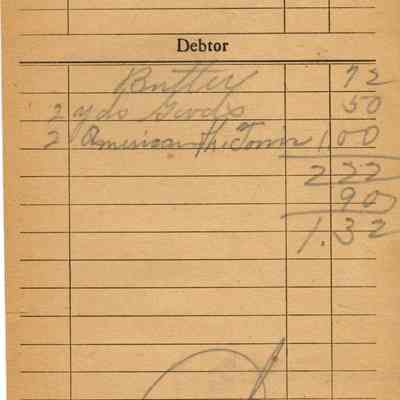 Debtor
Butter 72
2 yds Goods 50
2 American 1.00
2 22
90
1.32